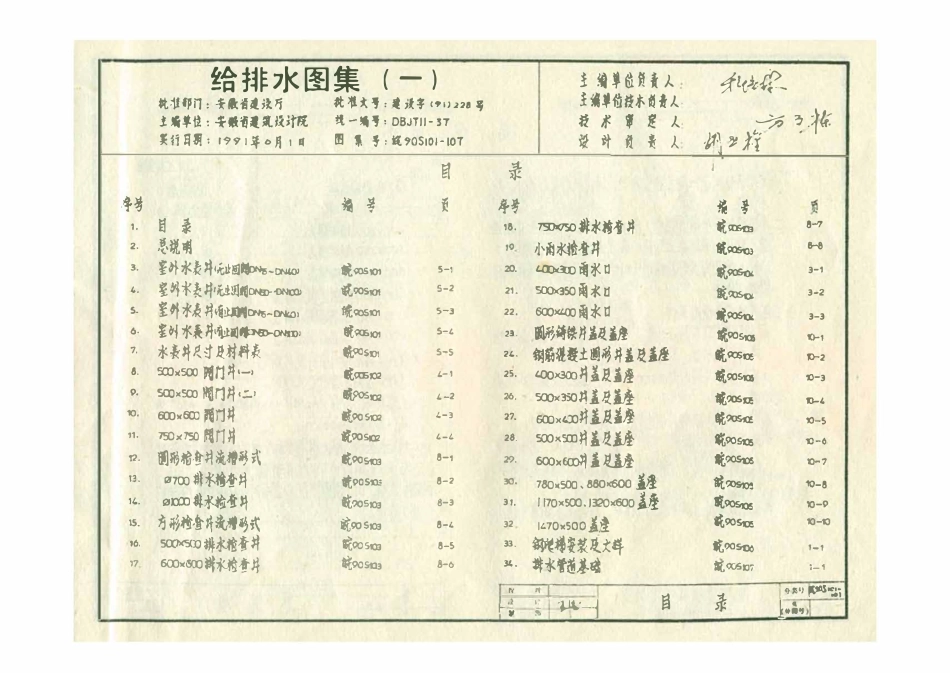 给排水图集(一)
批准部门:安徽省建设厅 批准文号:建设字(91)228号
主编单位:安徽省建筑设计院 统一编号:DBJT11-37
实行日期:1991年 月1日 图集号:皖90S101-107
主编单位负责人:
主编单位技术负责人:
技术审定人:
设计负责人:
目 录
序号 编号 页
1. 目录
2. 总说明
3. 室外水表井(无止回阀DN15~DN40) 皖90S101 5-1
4. 室外水表井(无止回阀DN50~DN100) 皖90S101 5-2
5. 室外水表井(有止回阀DN15~DN40) 皖90S101 5-3
6. 室外水表井(有止回阀DN50~DN100) 皖90S101 5-4
7. 水表井尺寸及材料表 皖90S101 5-5
8. 500×500阀门井(一) 皖90S102 4-1
9. 500×500阀门井(二) 皖90S102 4-2
10. 600×600阀门井 皖90S102 4-3
11. 750×750阀门井 皖90S102 4-4
12. 圆形检查井流槽形式 皖90S103 8-1
13. ø700排水检查井 皖90S103 8-2
14. ø1000排水检查井 皖90S103 8-3
15. 方形检查井流槽形式 皖90S103 8-4
16. 500×500排水检查井 皖90S103 8-5
17. 600×600排水检查井 皖90S103 8-6
序号 编号 页
18. 750×750排水检查井 皖90S103 8-7
19. 小雨水检查井 皖90S103 8-8
20. 400×300雨水口 皖90S104 3-1
21. 500×350雨水口 皖90S104 3-2
22. 600×400雨水口 皖90S104 3-3
23. 圆形铸铁井盖及盖座 皖90S105 10-1
24. 钢筋混凝土圆形井盖及盖座 皖90S105 10-2
25. 400×300井盖及盖座 皖90S105 10-3
26. 500×350井盖及盖座 皖90S105 10-4
27. 600×400井盖及盖座 皖90S105 10-5
28. 500×500井盖及盖座 皖90S105 10-6
29. 600×600井盖及盖座 皖90S105 10-7
30. 780×500、880×600盖座 皖90S105 10-8
31. 1170×500、1320×600盖座 皖90S105 10-9
32. 1470×500盖座 皖90S105 10-10
33. 钢爬梯安装及大样 皖90S106 1-1
34. 排水管道基础 皖90S107 1-1
校对
设计
制图
目 录
分类号 皖90S101-107
页